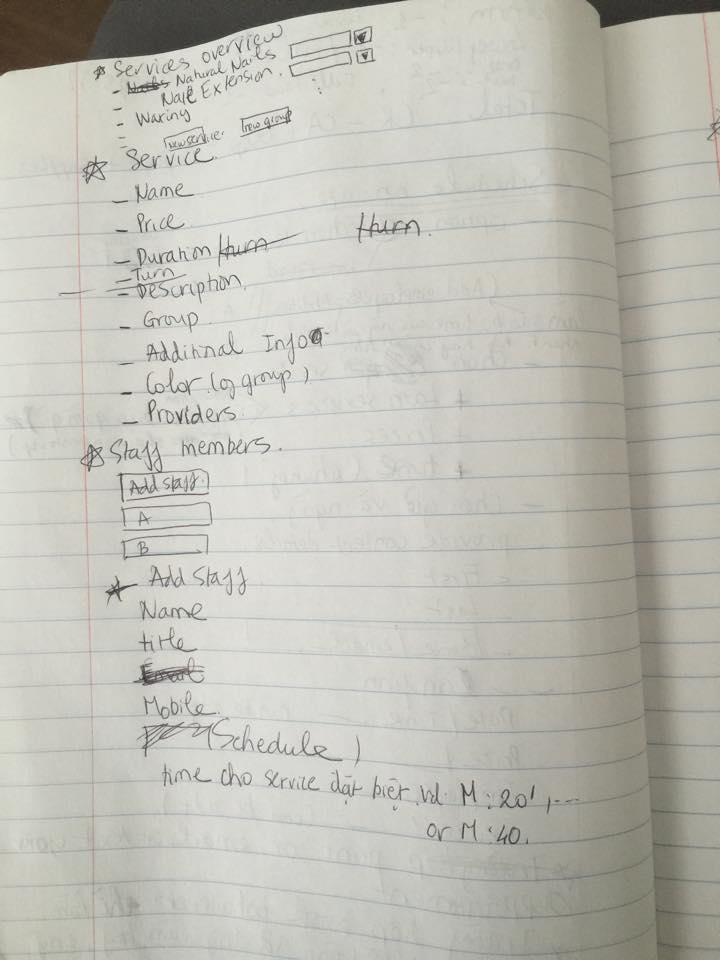 * Services overview
- Natural Nails
- Nail Extension.
- Waxing
-
new service. new group
* Service.
- Name
- Price
- Duration
- Turn
- Description.
- Group
- Additinal Info
- Color (of group)
- Providers
* Staff members.
Add staff.
A
B
* Add Staff
Name
title
Mobile.
(Schedule)
time cho service đặt biệt vd M: 20', ---
or M: 40.